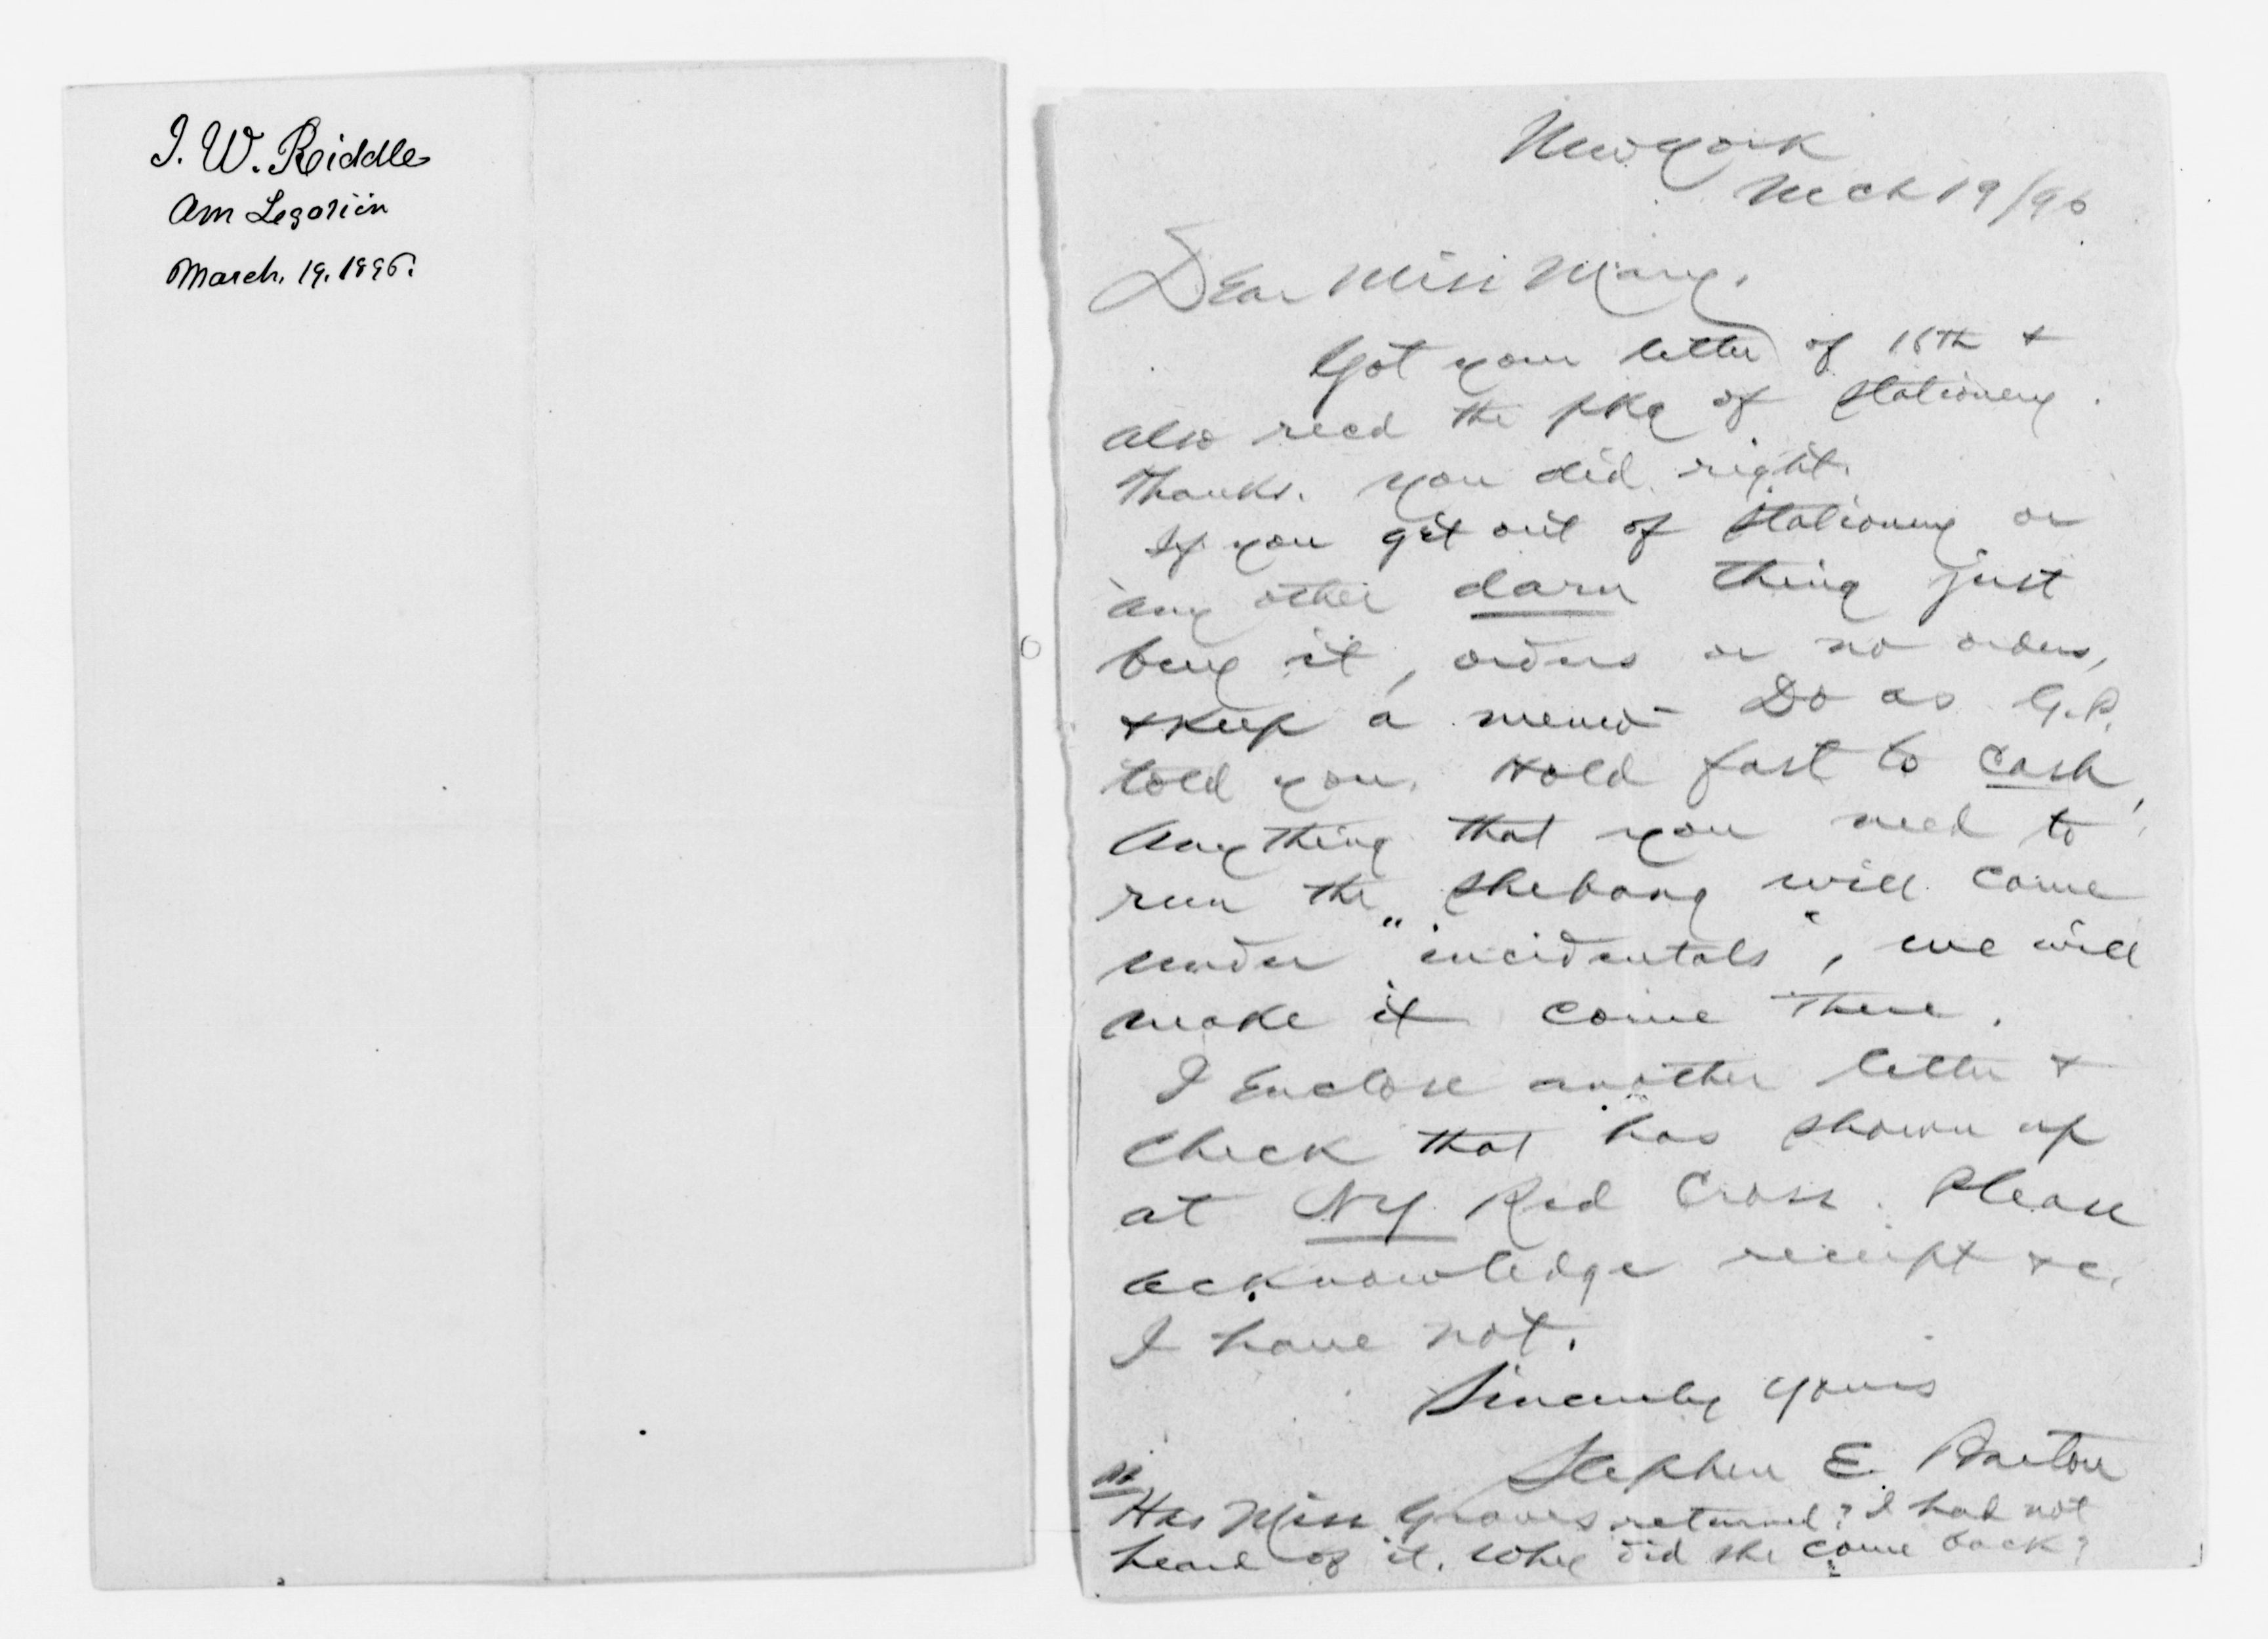 J. W. Riddle
Am Legation
March. 19. 1896.
New York
Mch 19/96
Dear Miss Mary.
Got your letter of 18th &
also recd the pkg of stationery.
Thanks. You did right.
If you get out of stationery or
any other darn thing just
buy it, orders or no orders,
& keep a memo - Do as G.P.
told you. Hold fast to cash,
Anything that you need to
run the shebang will come
under "incidentals", we will
make it come there.
I Enclose another letter &
check that has shown up
at NY Red Cross. Please
acknowledge receipt &c.
I have not.
Sincerely yours
Stephen E. Barton
Has Miss Graves returned? I had not
heard of it. Why did she come back?